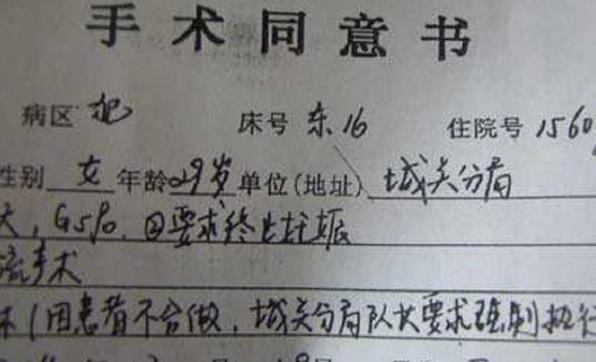 手术同意书
病区 妇 床号 东16 住院号 1560
性别 女 年龄 29岁 单位(地址) 城关分局
天, G5P0, ②要求终止妊娠
流手术
术(因患者不合做, 城关分局队长要求强制执行